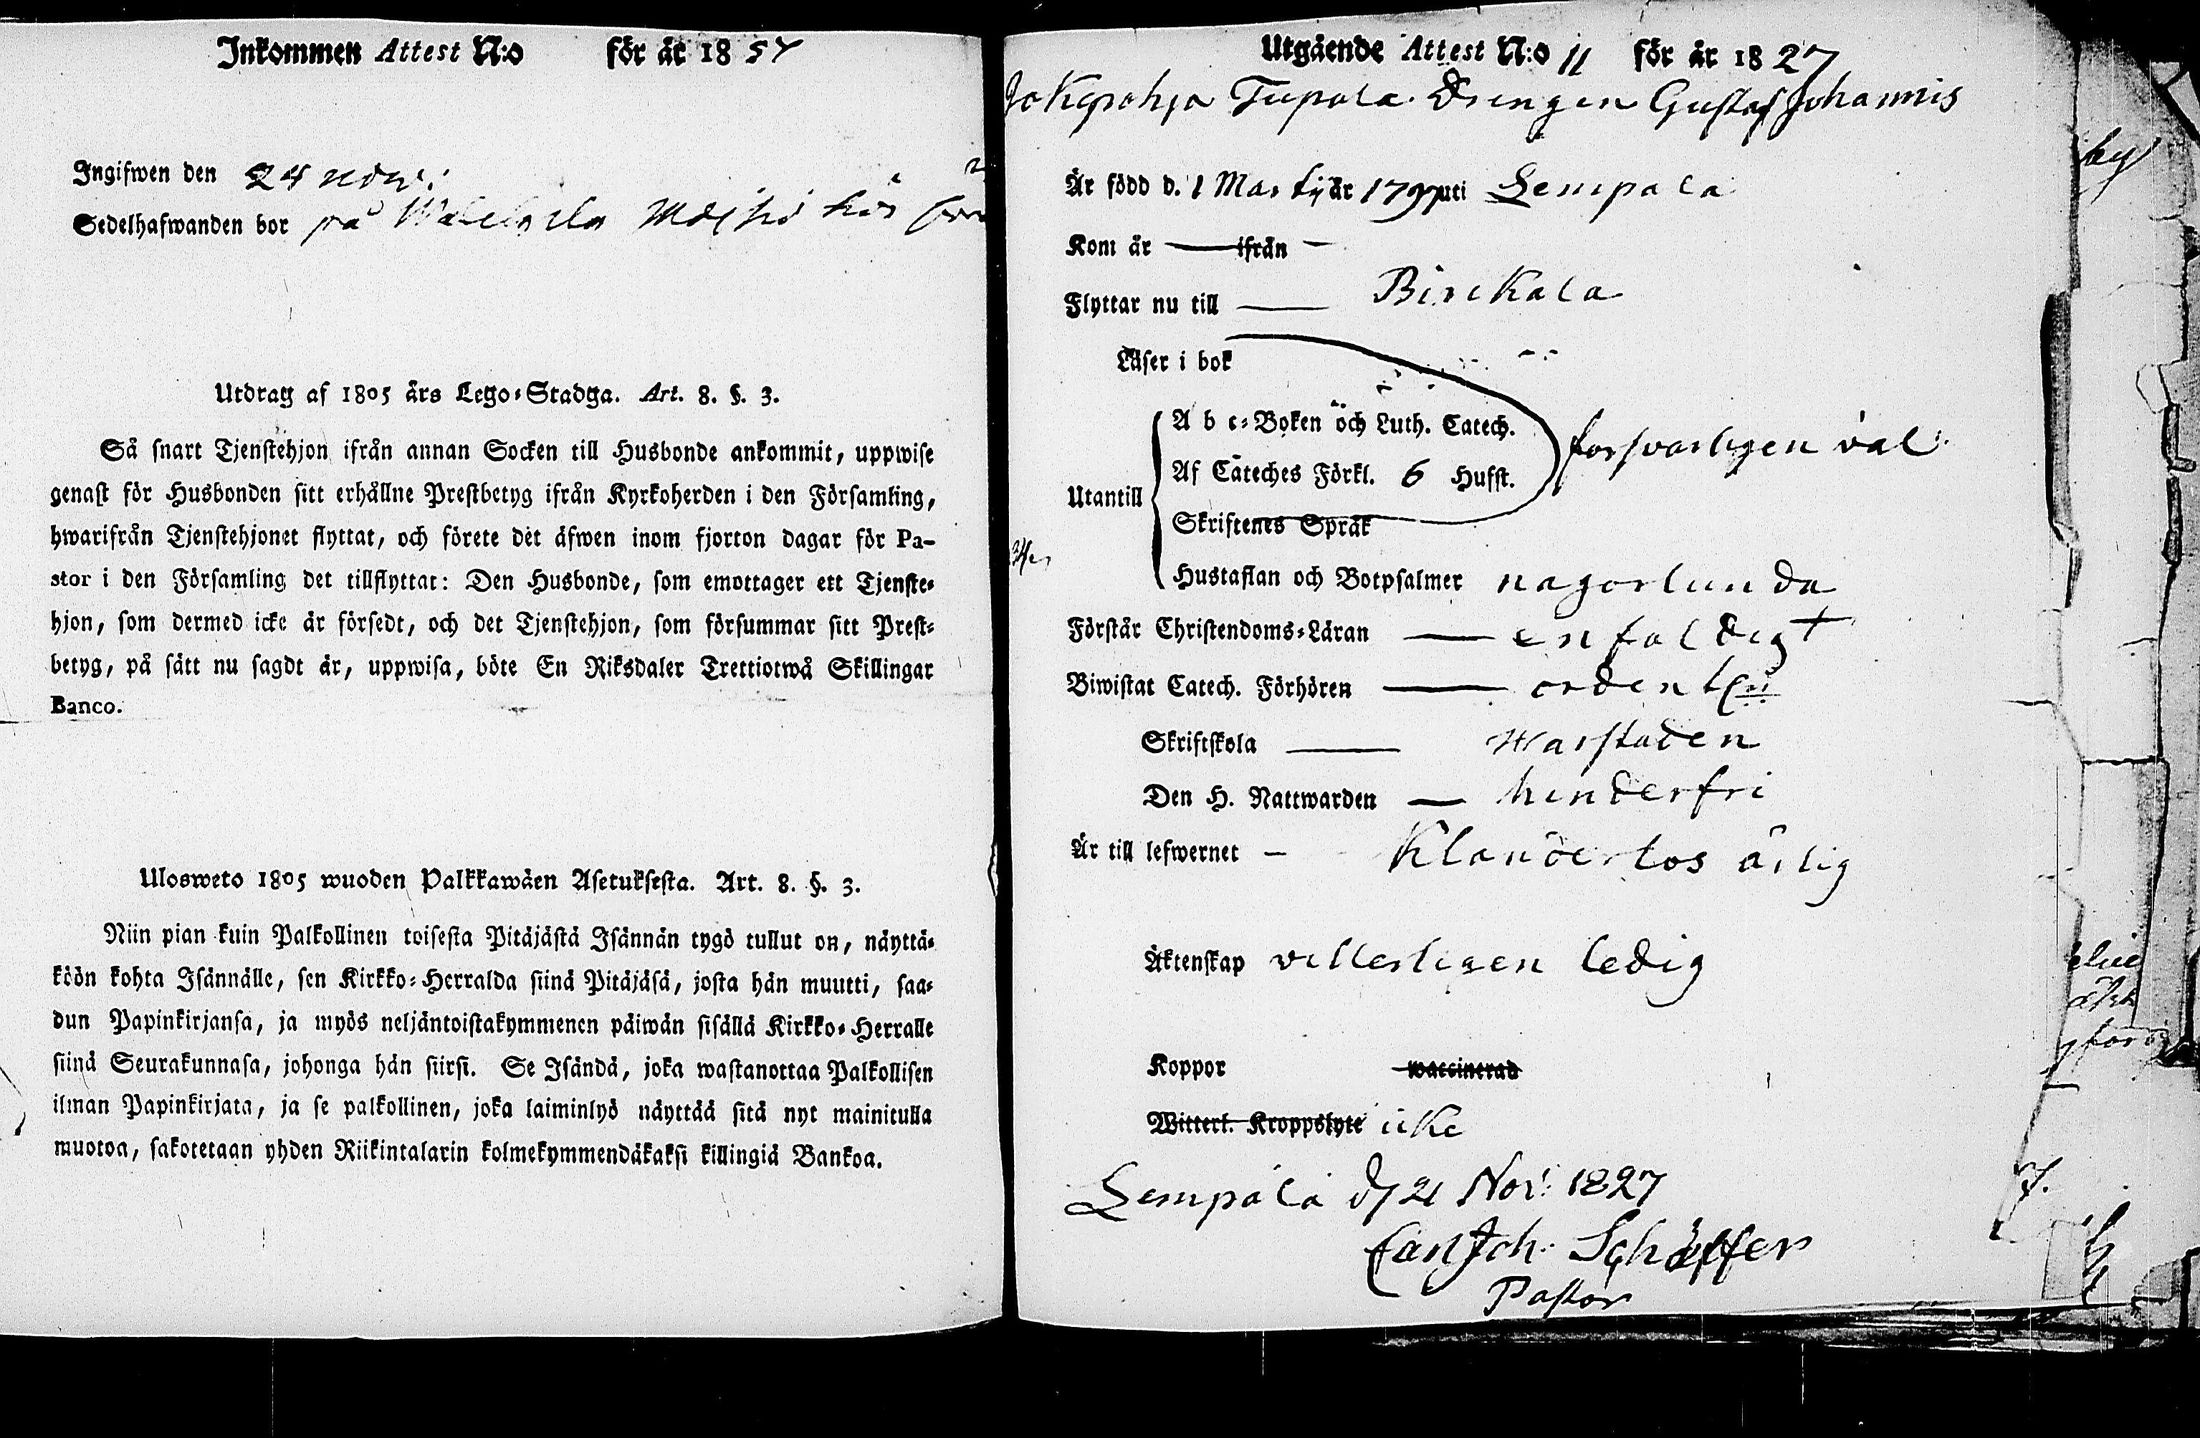 Inkommen Attest N:o för år 18 57
Ingifwen den 24 now:
Sedelhafwanden bor på hos
Utdrag af 1805 års Lego-Stadga. Art. 8. §. 3.
Så snart Tjenstehjon ifrån annan Socken till Husbonde ankommit, uppwise
genast för Husbonden sitt erhållne Prestbetyg ifrån Kyrkoherden i den Församling,
hwarifrån Tjenstehjonet flyttat, och förete det äfwen inom fjorton dagar för Pa-
stor i den Församling det tillflyttat: Den Husbonde, som emottager ett Tjenste-
hjon, som dermed icke är försedt, och det Tjenstehjon, som försummar sitt Prest-
betyg, på sätt nu sagdt är, uppwisa, böte En Riksdaler Trettiotwå Skillingar
Banco.
Ulosweto 1805 wuoden Palkkawäen Asetuksesta. Art. 8. §. 3.
Niin pian kuin Palkollinen toisesta Pitäjästä Isännän tygö tullut on, näyttä-
köön kohta Isännälle, sen Kirkko-Herralda siinä Pitäjäsä, josta hän muutti, saa-
dun Papinkirjansa, ja myös neljäntoistakymmenen päiwän sisällä Kirkko-Herralle
siinä Seurakunnasa, johonga hän siirsi. Se Isändä, joka wastanottaa Palkollisen
ilman Papinkirjata, ja se palkollinen, joka laiminlyö näyttää sitä nyt mainitulla
muotoa, sakotetaan yhden Riikintalarin kolmekymmendäkaksi killingiä Bankoa.
Utgående Attest N:o 11 för år 1827
Tupala Drengen Gustaf Johannis
Är född d. 1 Martij år 1797 uti Lempala
Kom år ifrån
Flyttar nu till Birckala
Läser i bok
A b c-Boken och Luth. Catech. forsvarligen väl
Af Cateches Förkl. 6 Hufst.
Utantill
Skriftenes Språk
Hustaflan och Botpsalmer nagorlunda
Förstår Christendoms-Läran enfaldigt
Biwistat Catech. Förhören
Skriftskola
Den H. Nattwarden hinderfri
Är till lefwernet Klanderlos ärlig
Äktenskap vitterligen ledig
Koppor waccinerad
Witterl. Kroppslyte icke
Lempälä d 21 Nov: 1827
Carl Joh. Schäffer
Pastor